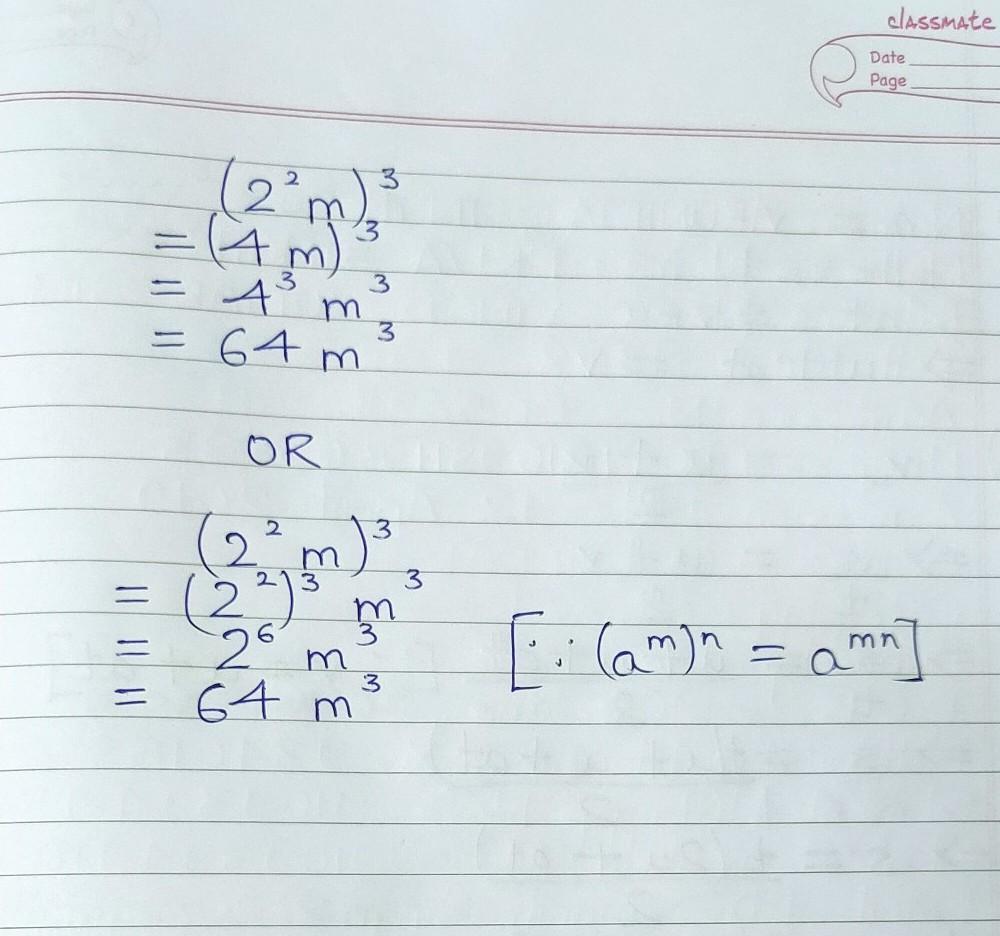 classmate
Date
Page
(2² m)³
= (4 m)³
= 4³ m³
= 64 m³
OR
(2² m)³
= (2²)³ m³
= 2⁶ m³ [∵ (aᵐ)ⁿ = aᵐⁿ]
= 64 m³